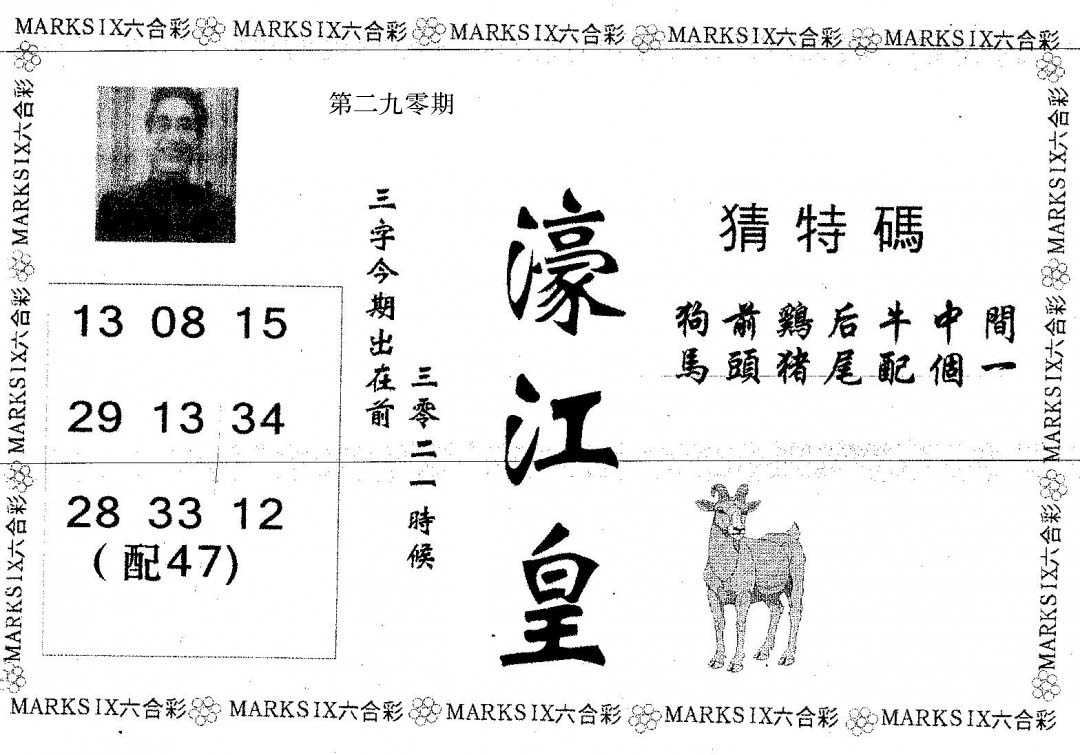 MARKSIX六合彩 MARKSIX六合彩 MARKSIX六合彩 MARKSIX六合彩 MARKSIX六合彩
第二九零期
猜特碼
狗前鷄后牛中間
馬頭猪尾配個一
濠江皇
三字今期出在前
三零二一時候
13 08 15
29 13 34
28 33 12
(配47)
MARKSIX六合彩
MARKSIX六合彩
MARKSIX六合彩
MARKSIX六合彩
MARKSIX六合彩
MARKSIX六合彩
MARKSIX六合彩 MARKSIX六合彩 MARKSIX六合彩 MARKSIX六合彩 MARKSIX六合彩